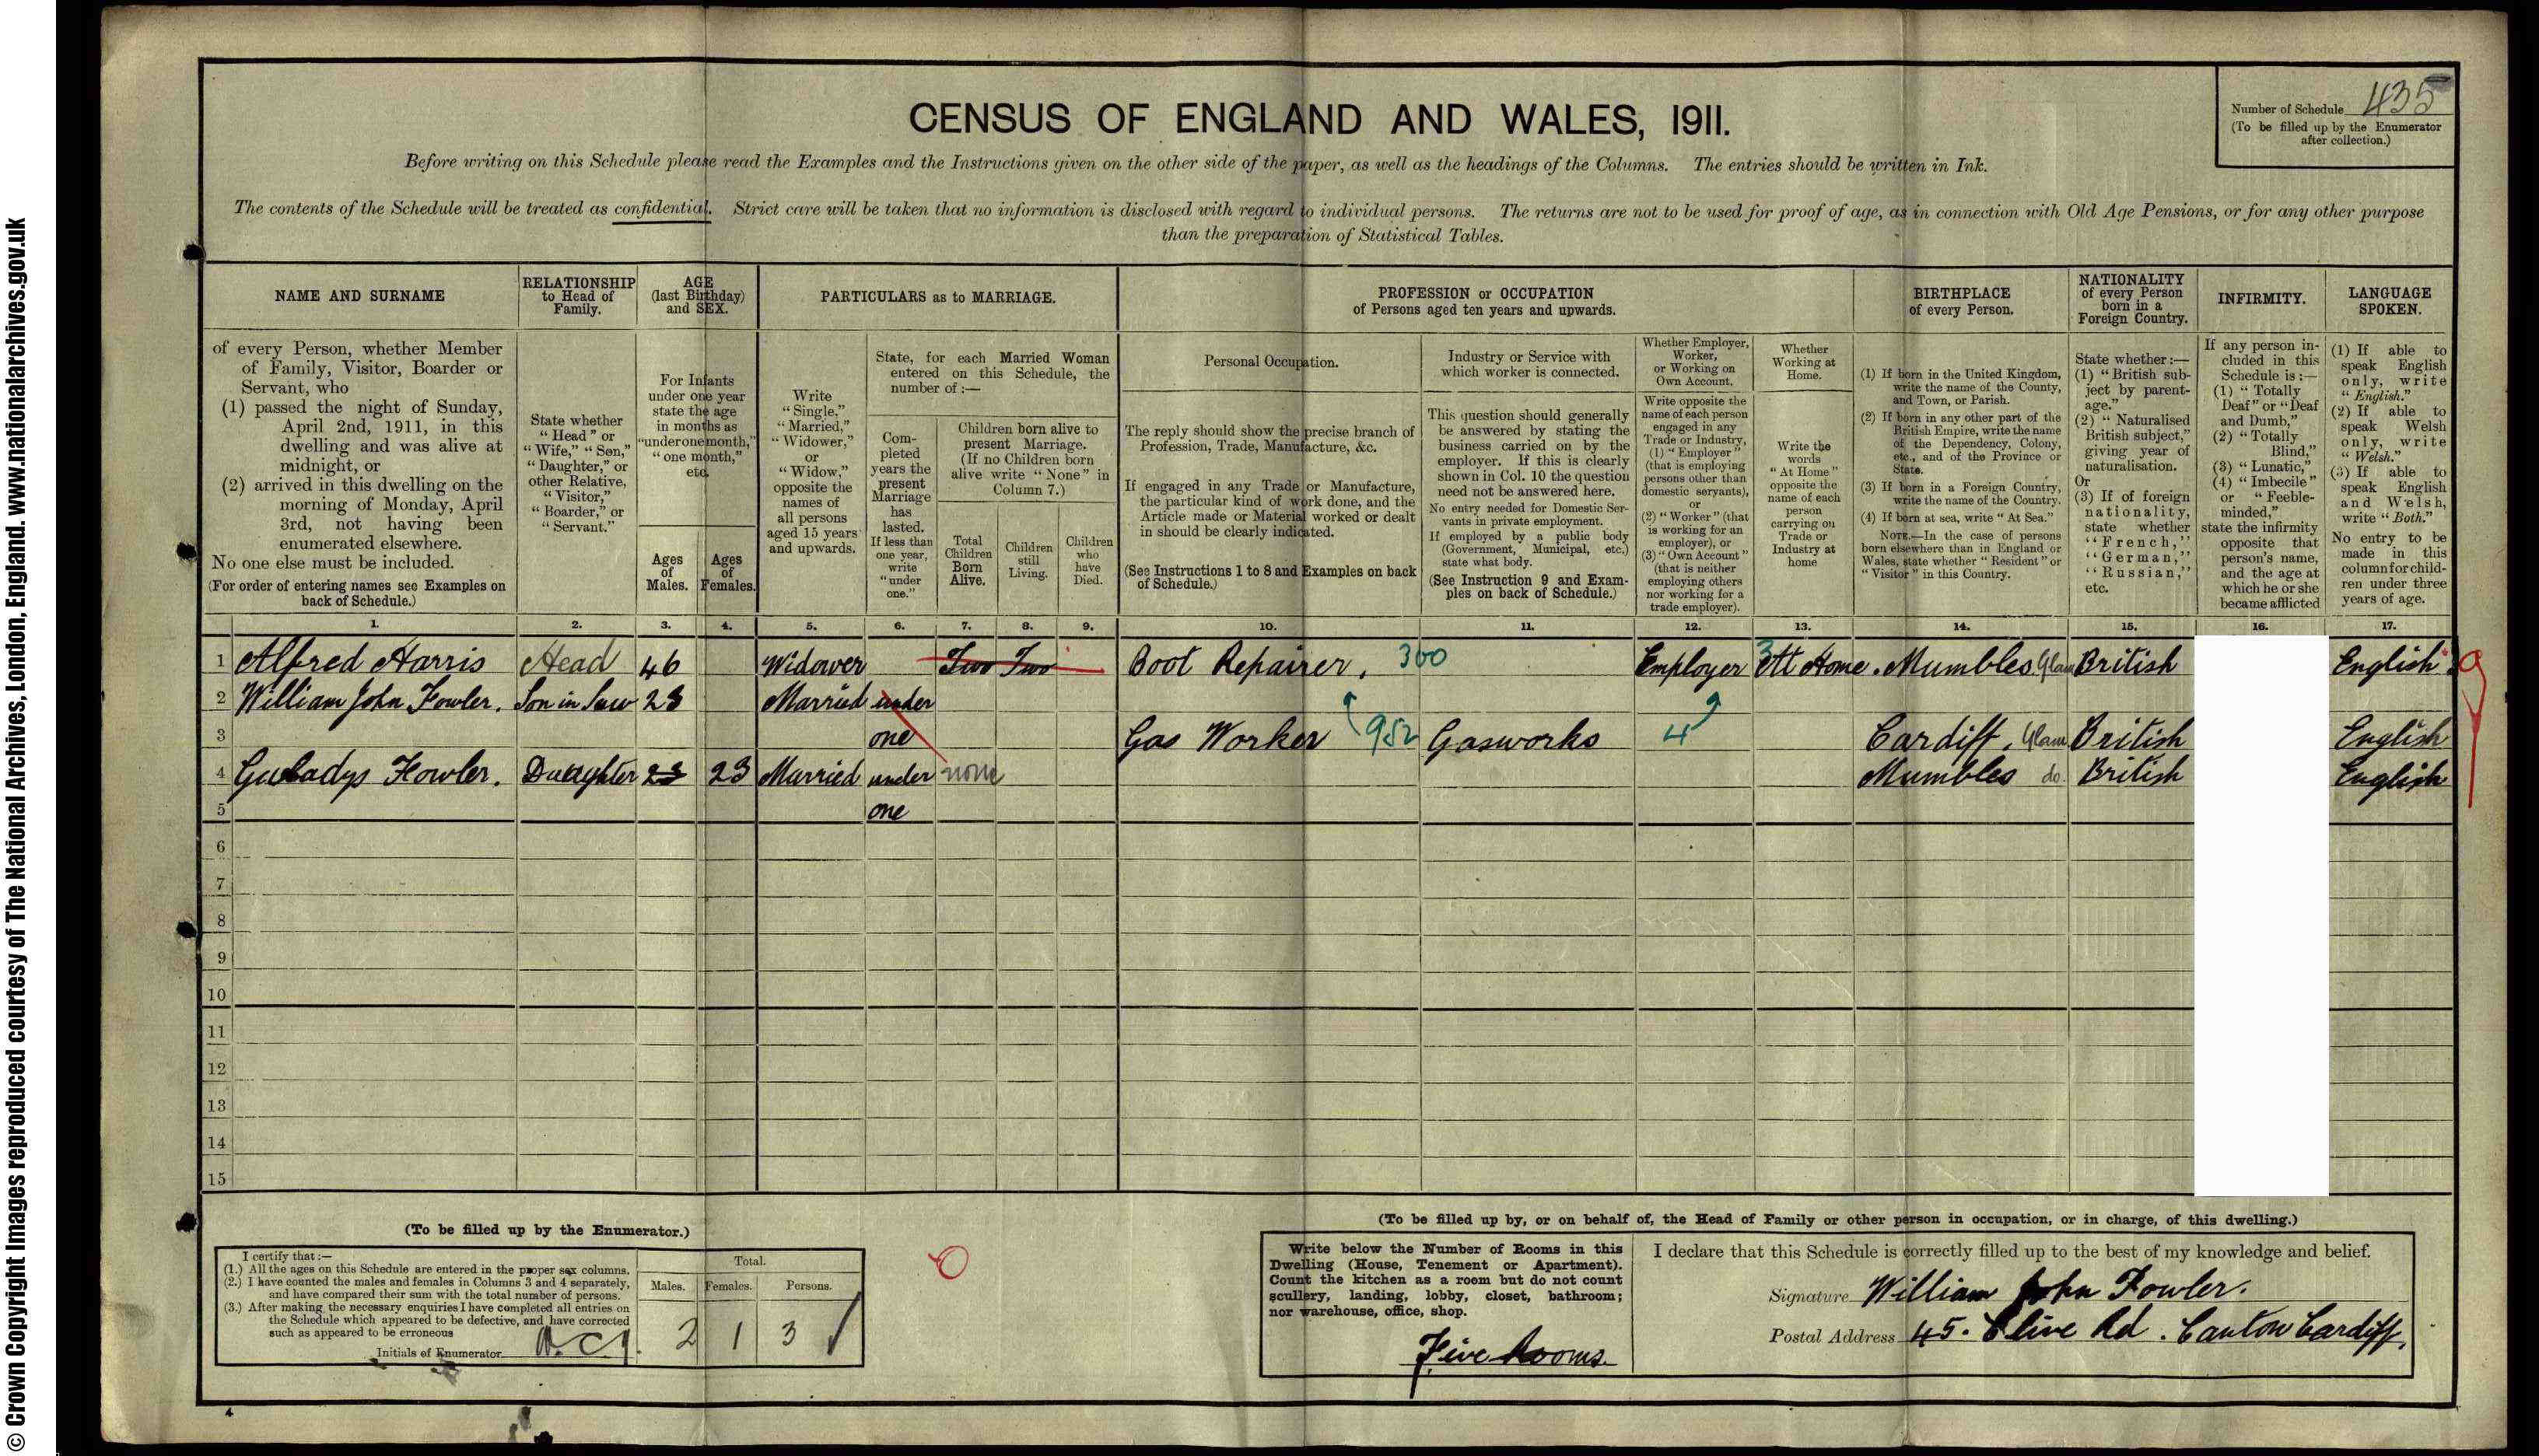 © Crown Copyright Images reproduced courtesy of The National Archives, London, England. www.nationalarchives.gov.uk
CENSUS OF ENGLAND AND WALES, 1911.
Number of Schedule 435
(To be filled up by the Enumerator
after collection.)
Before writing on this Schedule please read the Examples and the Instructions given on the other side of the paper, as well as the headings of the Columns. The entries should be written in Ink.
The contents of the Schedule will be treated as confidential. Strict care will be taken that no information is disclosed with regard to individual persons. The returns are not to be used for proof of age, as in connection with Old Age Pensions, or for any other purpose
than the preparation of Statistical Tables.
NAME AND SURNAME
of every Person, whether Member
of Family, Visitor, Boarder or
Servant, who
(1) passed the night of Sunday,
April 2nd, 1911, in this
dwelling and was alive at
midnight, or
(2) arrived in this dwelling on the
morning of Monday, April
3rd, not having been
enumerated elsewhere.
No one else must be included.
(For order of entering names see Examples on
back of Schedule.)
RELATIONSHIP
to Head of
Family.
State whether
"Head" or
"Wife," "Son,"
"Daughter," or
other Relative,
"Visitor,"
"Boarder," or
"Servant."
AGE
(last Birthday)
and SEX.
For Infants
under one year
state the age
in months as
"under one month,"
"one month,"
etc.
Ages
of
Males.
Ages
of
Females.
PARTICULARS as to MARRIAGE.
Write
"Single,"
"Married,"
"Widower,"
or
"Widow,"
opposite the
names of
all persons
aged 15 years
and upwards.
State, for each Married Woman
entered on this Schedule, the
number of :—
Com-
pleted
years the
present
Marriage
has
lasted.
If less than
one year,
write
"under
one."
Children born alive to
present Marriage.
(If no Children born
alive write "None" in
Column 7.)
Total
Children
Born
Alive.
Children
still
Living.
Children
who
have
Died.
PROFESSION or OCCUPATION
of Persons aged ten years and upwards.
Personal Occupation.
The reply should show the precise branch of
Profession, Trade, Manufacture, &c.
If engaged in any Trade or Manufacture,
the particular kind of work done, and the
Article made or Material worked or dealt
in should be clearly indicated.
(See Instructions 1 to 8 and Examples on back
of Schedule.)
Industry or Service with
which worker is connected.
This question should generally
be answered by stating the
business carried on by the
employer. If this is clearly
shown in Col. 10 the question
need not be answered here.
No entry needed for Domestic Ser-
vants in private employment.
If employed by a public body
(Government, Municipal, etc.)
state what body.
(See Instruction 9 and Exam-
ples on back of Schedule.)
Whether Employer,
Worker,
or Working on
Own Account.
Write opposite the
name of each person
engaged in any
Trade or Industry,
(1) "Employer"
(that is employing
persons other than
domestic servants),
or
(2) "Worker" (that
is working for an
employer), or
(3) "Own Account"
(that is neither
employing others
nor working for a
trade employer).
Whether
Working at
Home.
Write the
words
"At Home"
opposite the
name of each
person
carrying on
Trade or
Industry at
home
BIRTHPLACE
of every Person.
(1) If born in the United Kingdom,
write the name of the County,
and Town, or Parish.
(2) If born in any other part of the
British Empire, write the name
of the Dependency, Colony,
etc., and of the Province or
State.
(3) If born in a Foreign Country,
write the name of the Country.
(4) If born at sea, write "At Sea."
NOTE.—In the case of persons
born elsewhere than in England or
Wales, state whether "Resident" or
"Visitor" in this Country.
NATIONALITY
of every Person
born in a
Foreign Country.
State whether :—
(1) "British sub-
ject by parent-
age."
(2) "Naturalised
British subject,"
giving year of
naturalisation.
Or
(3) If of foreign
nationality,
state whether
"French,"
"German,"
"Russian,"
etc.
INFIRMITY.
If any person in-
cluded in this
Schedule is :—
(1) "Totally
Deaf" or "Deaf
and Dumb,"
(2) "Totally
Blind,"
(3) "Lunatic,"
(4) "Imbecile"
or "Feeble-
minded,"
state the infirmity
opposite that
person's name,
and the age at
which he or she
became afflicted
LANGUAGE
SPOKEN.
(1) If able to
speak English
only, write
"English."
(2) If able to
speak Welsh
only, write
"Welsh."
(3) If able to
speak English
and Welsh,
write "Both."
No entry to be
made in this
column for child-
ren under three
years of age.
1. 2. 3. 4. 5. 6. 7. 8. 9. 10. 11. 12. 13. 14. 15. 16. 17.
1 Alfred Harris Head 46 Widower Two Two Boot Repairer. 300 Employer 3 At Home. Mumbles Glam British English
2 William John Fowler. Son in Law 23 Married under
3 one Gas Worker 952 Gasworks 4 Cardiff. Glam British English
4 Gwladys Fowler. Daughter 23 23 Married under none Mumbles do. British English
5 one
6
7
8
9
10
11
12
13
14
15
(To be filled up by the Enumerator.)
I certify that :—
(1.) All the ages on this Schedule are entered in the proper sex columns.
(2.) I have counted the males and females in Columns 3 and 4 separately,
and have compared their sum with the total number of persons.
(3.) After making the necessary enquiries I have completed all entries on
the Schedule which appeared to be defective, and have corrected
such as appeared to be erroneous
Initials of Enumerator
Total.
Males. Females. Persons.
2 1 3
(To be filled up by, or on behalf of, the Head of Family or other person in occupation, or in charge, of this dwelling.)
Write below the Number of Rooms in this
Dwelling (House, Tenement or Apartment).
Count the kitchen as a room but do not count
scullery, landing, lobby, closet, bathroom;
nor warehouse, office, shop.
Five Rooms.
I declare that this Schedule is correctly filled up to the best of my knowledge and belief.
Signature William John Fowler.
Postal Address 45. Clive Rd. Canton Cardiff.
4